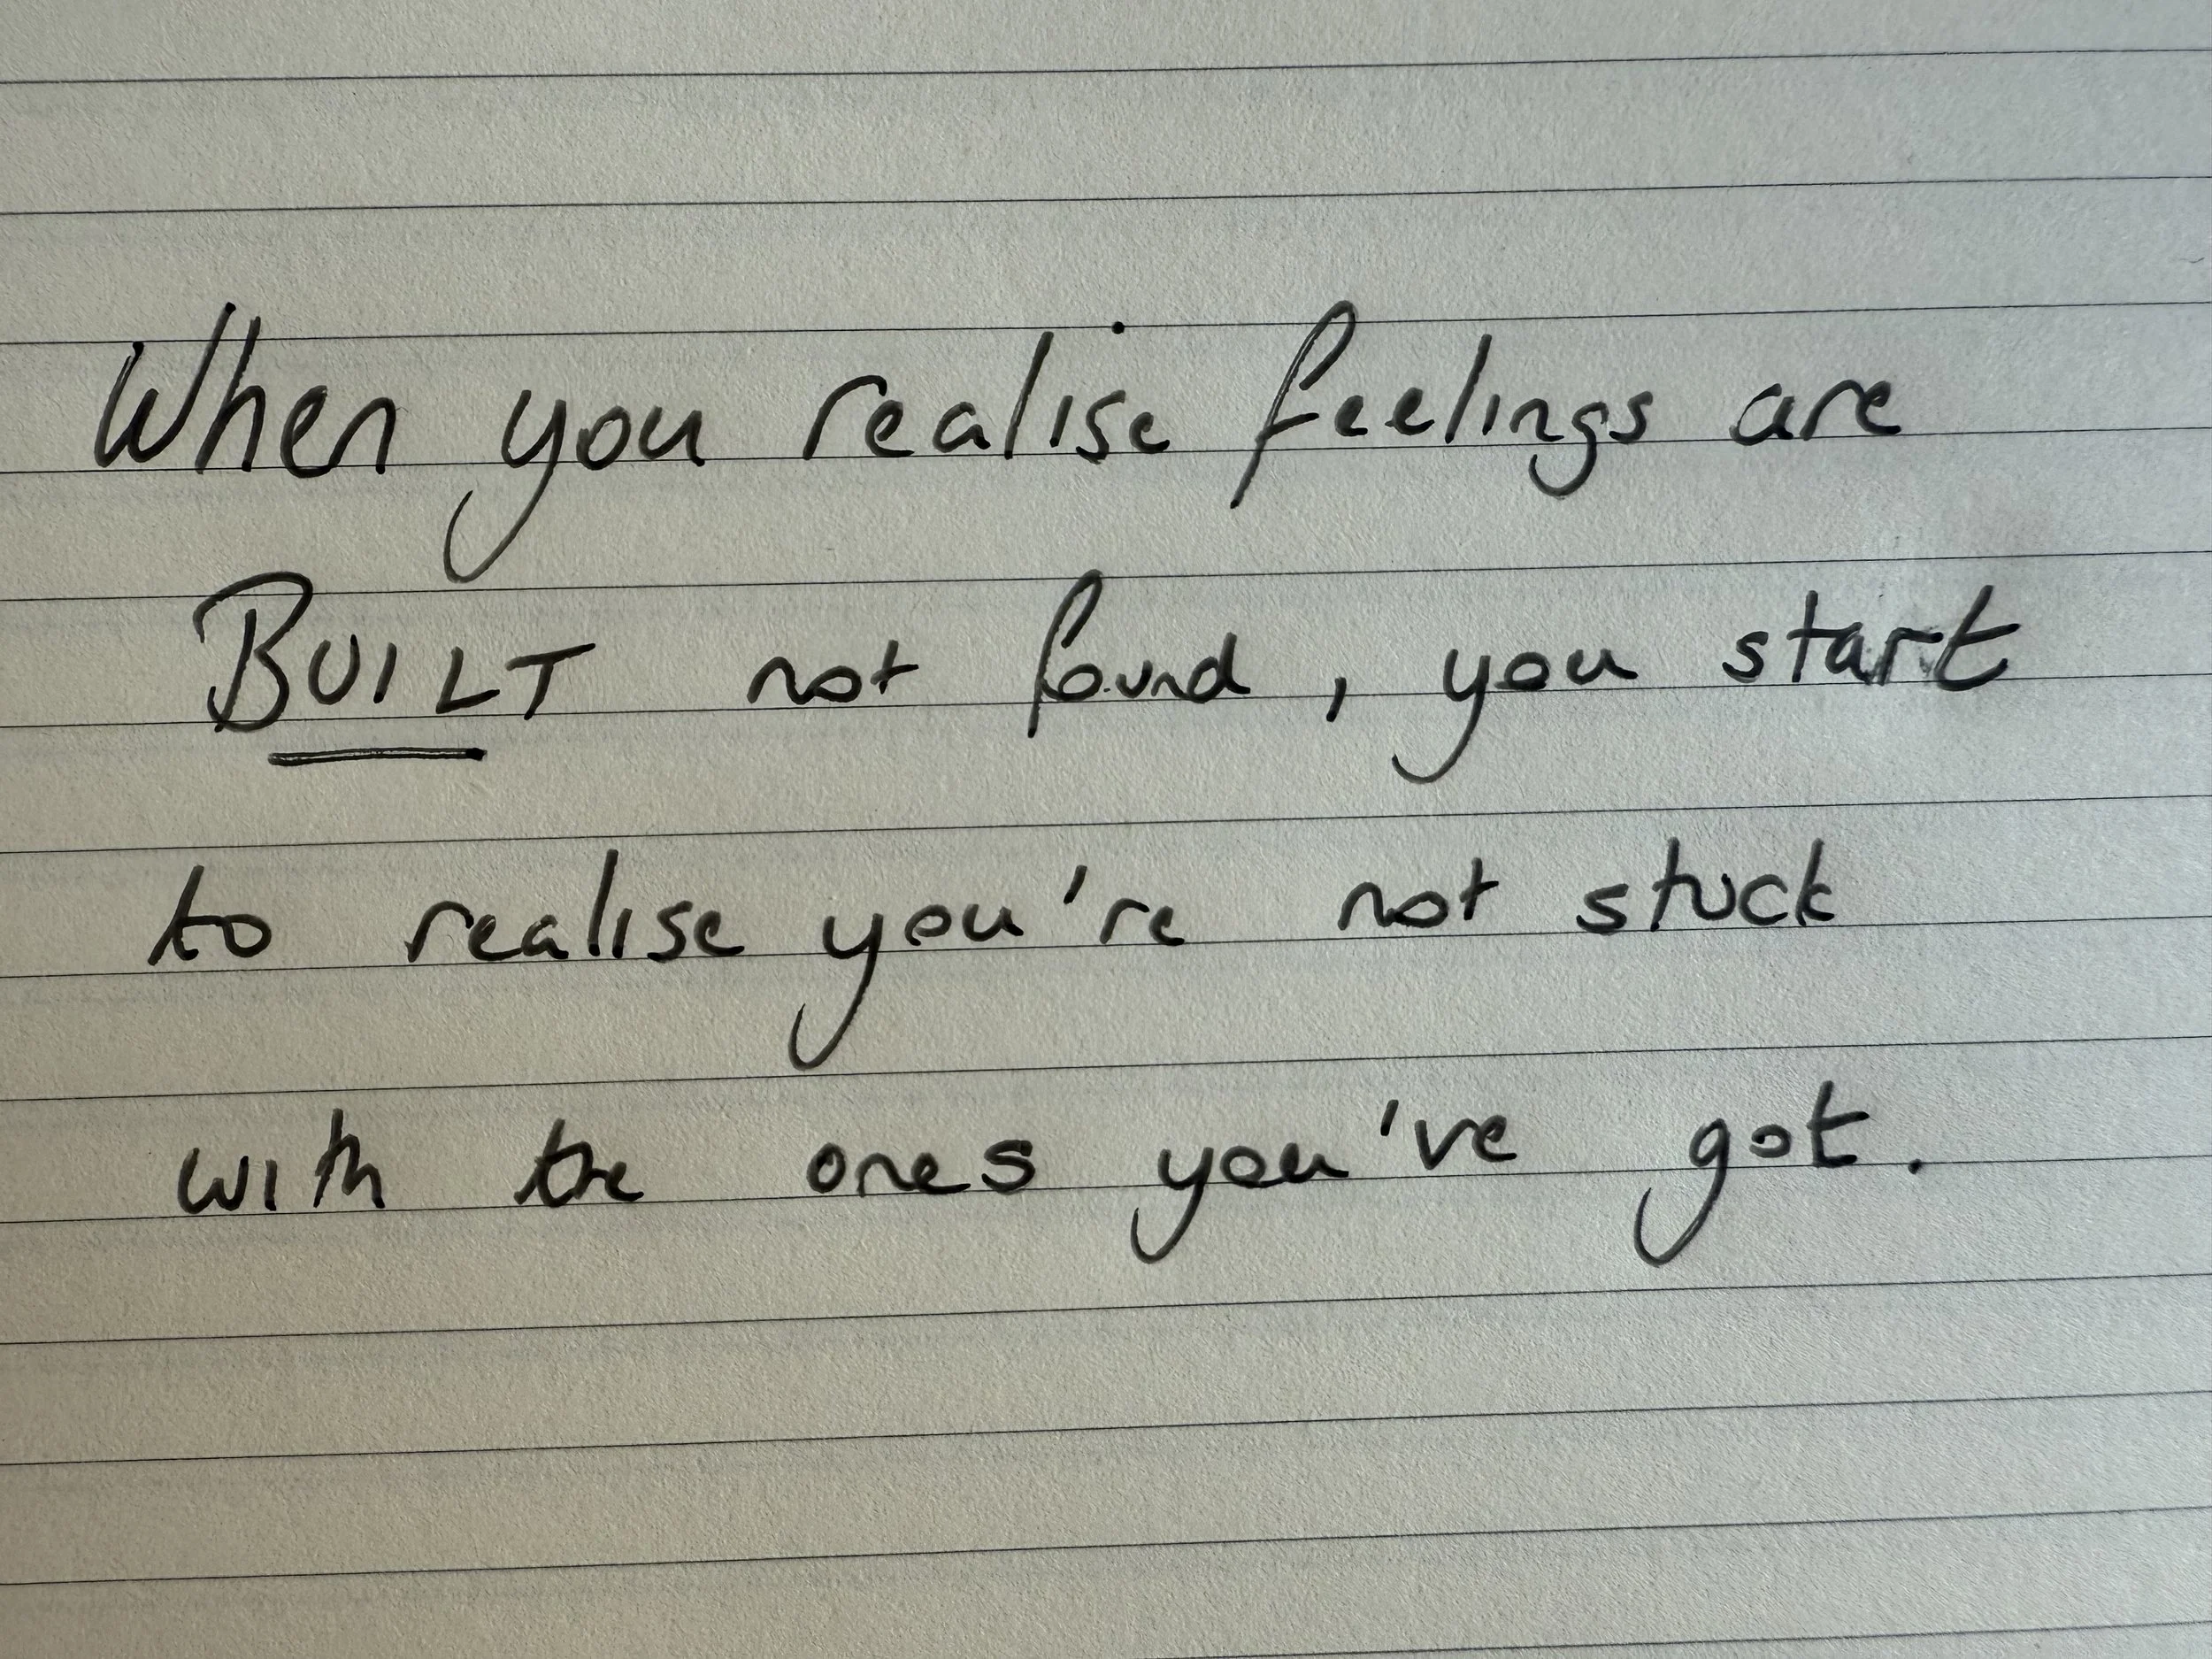 When you realise feelings are
BUILT not found, you start
to realise you're not stuck
with the ones you've got.